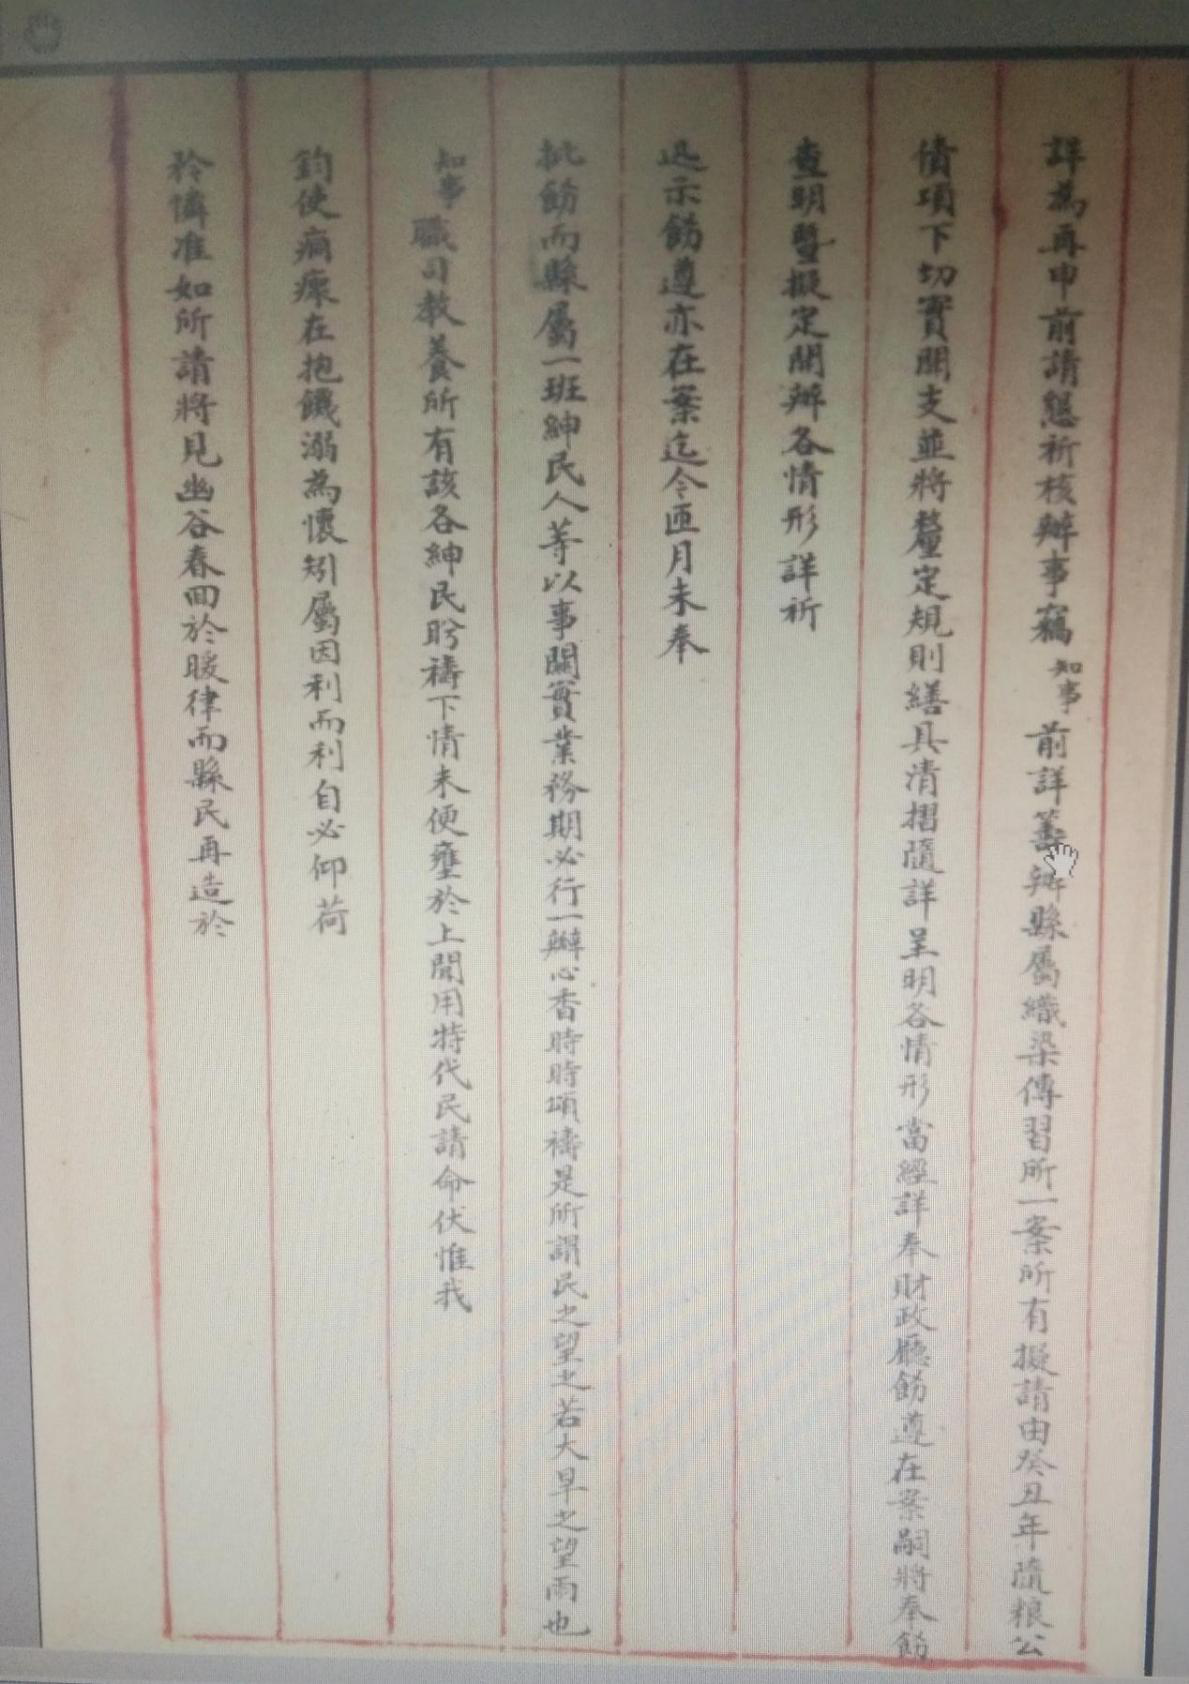 詳為再申前請懇祈核辦事竊知事前詳籌辦縣屬織染傳習所一案所有擬請由癸丑年隨粮公
債項下切實開支並將釐定規則繕具清摺隨詳呈明各情形當經詳奉財政廳飭遵在案嗣將奉飭
查明暨擬定開辦各情形詳祈
迅示飭遵亦在案迄今匝月未奉
批飭而縣屬一班紳民人等以事關實業務期必行一瓣心香時時頌禱是所謂民之望之若大旱之望雨也
知事職司教養所有該各紳民盼禱下情未便壅於上聞用特代民請命伏惟我
鈞使痌瘝在抱饑溺為懷矧屬因利而利自必仰荷
矜憐准如所請將見幽谷春回於暖律而縣民再造於